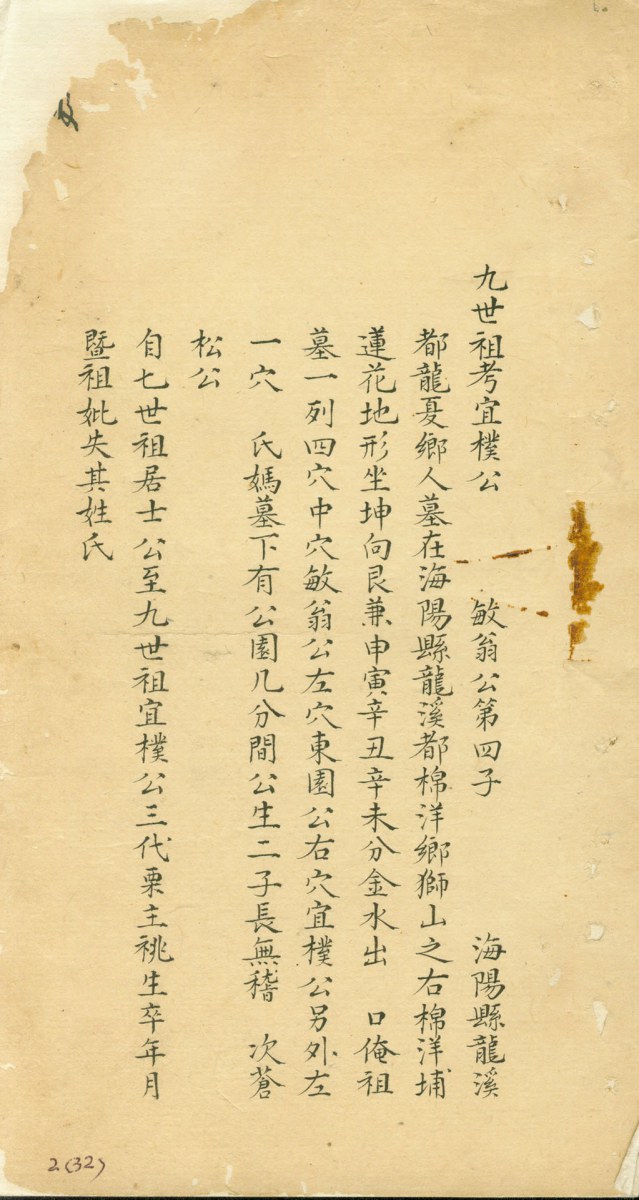 九世祖考宜樸公　敏翁公第四子　海陽縣龍溪
都龍憂鄉人墓在海陽縣龍溪都棉洋鄉獅山之右棉洋埔
蓮花地形坐坤向艮兼申寅辛丑辛未分金水出　口俺祖
墓一列四穴中穴敏翁公左穴東園公右穴宜樸公另外左
一穴　氏媽墓下有公園几分間公生二子長無稽　次蒼
松公
自七世祖居士公至九世祖宜樸公三代栗主祧生卒年月
暨祖妣失其姓氏
2(32)